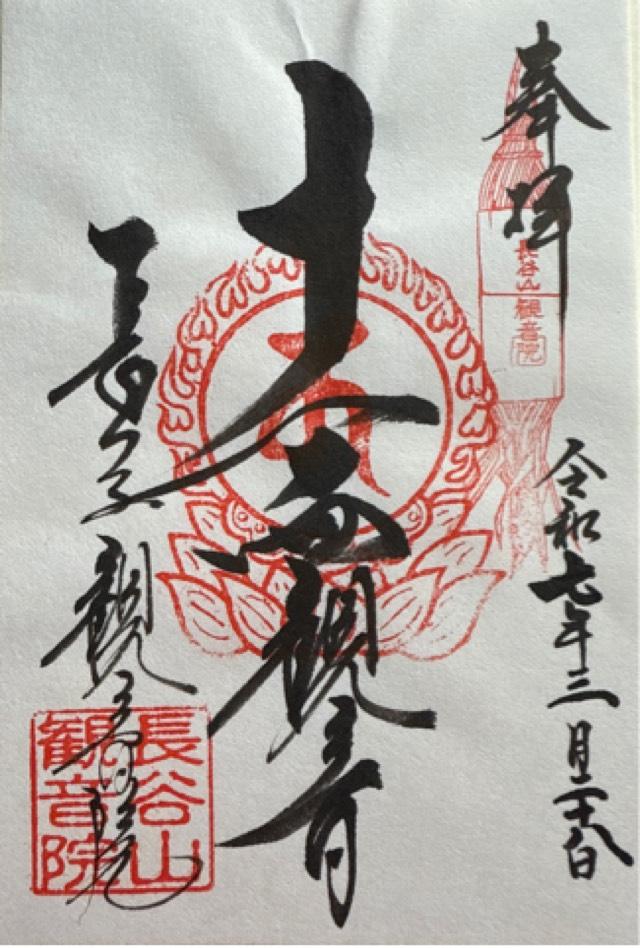 奉拝
長谷山
観音院
令和七年三月二十八日
十一面観音
観音院
長谷山
観音院